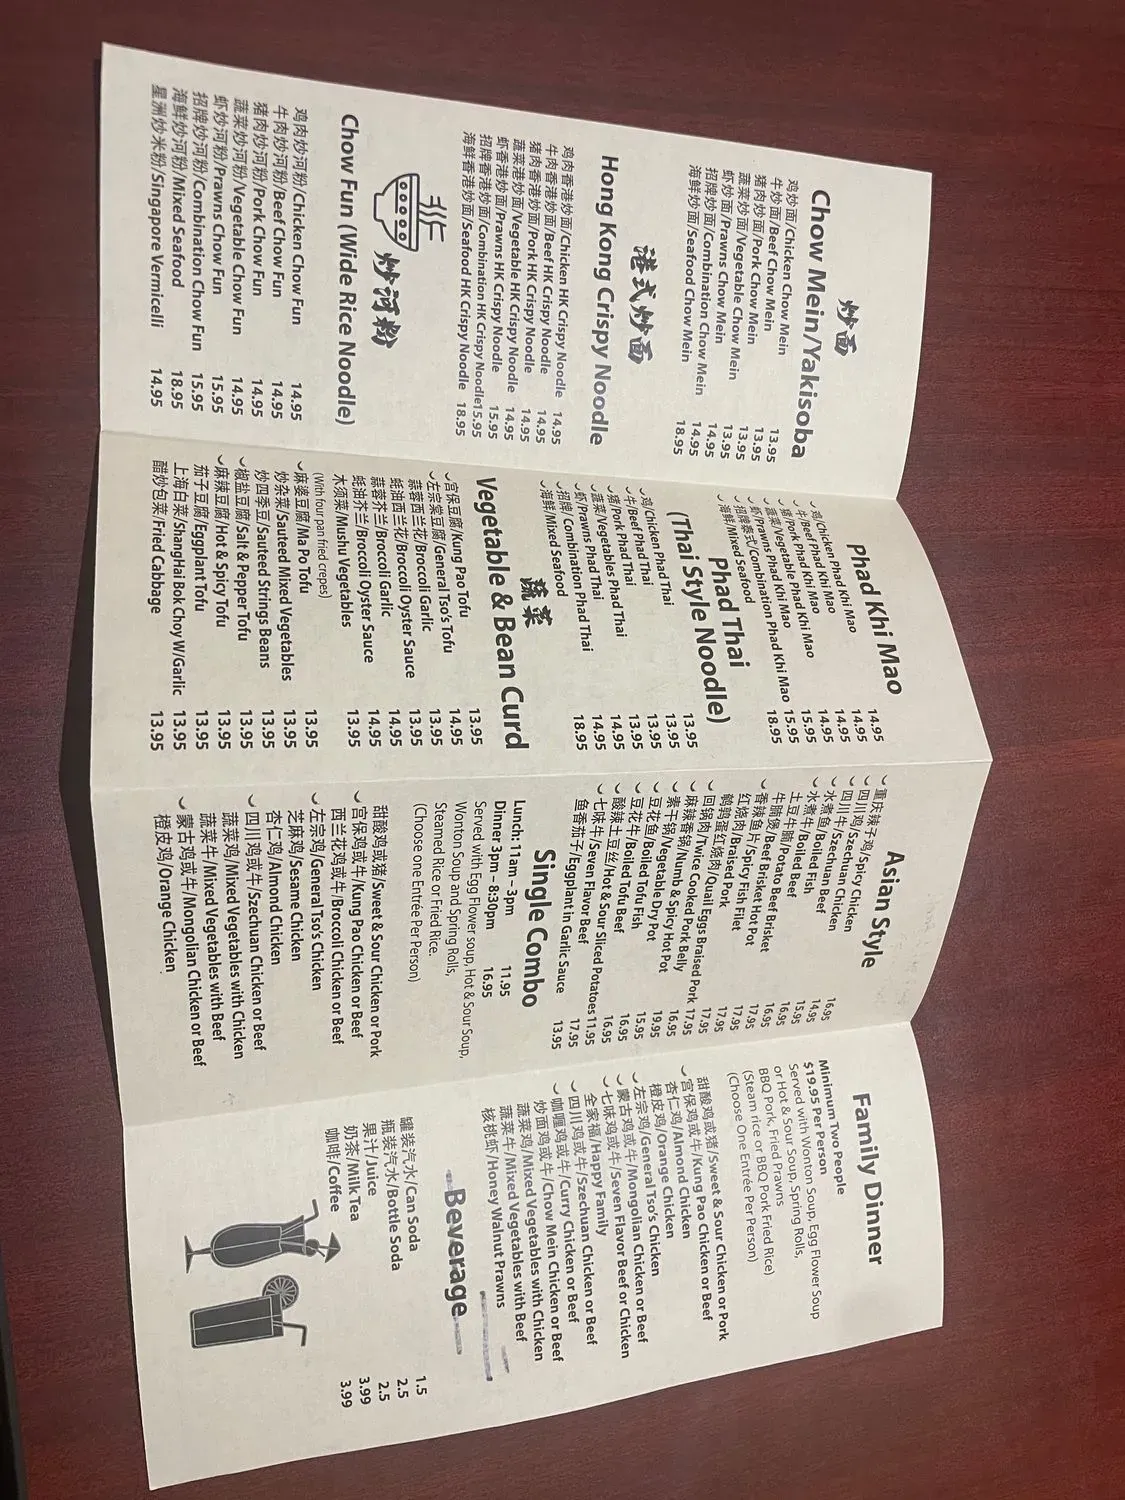 炒面
Chow Mein/Yakisoba
鸡炒面/Chicken Chow Mein 13.95
牛炒面/Beef Chow Mein 13.95
猪肉炒面/Pork Chow Mein 13.95
蔬菜炒面/Vegetable Chow Mein 13.95
虾炒面/Prawns Chow Mein 14.95
招牌炒面/Combination Chow Mein 14.95
海鲜炒面/Seafood Chow Mein 18.95
港式炒面
Hong Kong Crispy Noodle
鸡肉香港炒面/Chicken HK Crispy Noodle 14.95
牛肉香港炒面/Beef HK Crispy Noodle 14.95
猪肉香港炒面/Pork HK Crispy Noodle 14.95
蔬菜香港炒面/Vegetable HK Crispy Noodle 14.95
虾香港炒面/Prawns HK Crispy Noodle 15.95
招牌香港炒面/Combination HK Crispy Noodle15.95
海鲜香港炒面/Seafood HK Crispy Noodle 18.95
炒河粉
Chow Fun (Wide Rice Noodle)
鸡肉炒河粉/Chicken Chow Fun 14.95
牛肉炒河粉/Beef Chow Fun 14.95
猪肉炒河粉/Pork Chow Fun 14.95
蔬菜炒河粉/Vegetable Chow Fun 14.95
虾炒河粉/Prawns Chow Fun 15.95
招牌炒河粉/Combination Chow Fun 15.95
海鲜炒河粉/Mixed Seafood 18.95
星洲炒米粉/Singapore Vermicelli 14.95
Phad Khi Mao
鸡/Chicken Phad Khi Mao 14.95
牛/Beef Phad Khi Mao 14.95
猪/Pork Phad Khi Mao 14.95
蔬菜/Vegetable Phad Khi Mao 14.95
虾/Prawns Phad Khi Mao 15.95
招牌泰式/Combination Phad Khi Mao 15.95
海鲜/Mixed Seafood 18.95
Phad Thai
(Thai Style Noodle)
鸡/Chicken Phad Thai 13.95
牛/Beef Phad Thai 13.95
猪/Pork Phad Thai 13.95
蔬菜/Vegetables Phad Thai 13.95
虾/Prawns Phad Thai 14.95
招牌/Combination Phad Thai 14.95
海鲜/Mixed Seafood 18.95
蔬菜
Vegetable & Bean Curd
宫保豆腐/Kung Pao Tofu 13.95
左宗棠豆腐/General Tso's Tofu 14.95
蒜蓉西兰花/Broccoli Garlic 13.95
蚝油西兰花/Broccoli Oyster Sauce 13.95
蒜蓉芥兰/Broccoli Garlic 14.95
蚝油芥兰/Broccoli Oyster Sauce 14.95
木须菜/Mushu Vegetables 13.95
(With four pan fried crepes)
麻婆豆腐/Ma Po Tofu 13.95
炒杂菜/Sauteed Mixed Vegetables 13.95
炒四季豆/Sauteed Strings Beans 13.95
椒盐豆腐/Salt & Pepper Tofu 13.95
麻辣豆腐/Hot & Spicy Tofu 13.95
茄子豆腐/Eggplant Tofu 13.95
上海白菜/ShangHai Bok Choy W/Garlic 13.95
醋炒包菜/Fried Cabbage 13.95
Asian Style
重庆辣子鸡/Spicy Chicken 16.95
四川鸡/Szechuan Chicken 14.95
四川牛/Szechuan Beef 15.95
水煮鱼/Boiled Fish 16.95
水煮牛/Boiled Beef 16.95
土豆牛腩/Potato Beef Brisket 17.95
牛腩煲/Beef Brisket Hot Pot 17.95
香辣鱼片/Spicy Fish Filet 17.95
红烧肉/Braised Pork 17.95
鹌鹑蛋红烧肉/Quail Eggs Braised Pork 17.95
回锅肉/Twice Cooked Pork Belly 16.95
麻辣香锅/Numb & Spicy Hot Pot 19.95
素干锅/Vegetable Dry Pot 15.95
豆花鱼/Boiled Tofu Fish 16.95
豆花牛/Boiled Tofu Beef 16.95
酸辣土豆丝/Hot & Sour Sliced Potatoes 11.95
七味牛/Seven Flavor Beef 17.95
鱼香茄子/Eggplant in Garlic Sauce 13.95
Single Combo
Lunch: 11am – 3pm 11.95
Dinner 3pm – 8:30pm 16.95
Served with Egg Flower soup, Hot & Sour Soup,
Wonton Soup and Spring Rolls,
Steamed Rice or Fried Rice.
(Choose one Entrée Per Person)
甜酸鸡或猪/Sweet & Sour Chicken or Pork
宫保鸡或牛/Kung Pao Chicken or Beef
西兰花鸡或牛/Broccoli Chicken or Beef
左宗鸡/General Tso's Chicken
芝麻鸡/Sesame Chicken
杏仁鸡/Almond Chicken
四川鸡或牛/Szechuan Chicken or Beef
蔬菜鸡/Mixed Vegetables with Chicken
蔬菜牛/Mixed Vegetables with Beef
蒙古鸡或牛/Mongolian Chicken or Beef
橙皮鸡/Orange Chicken
Family Dinner
Minimum Two People
$19.95 Per Person
Served with Wonton Soup, Egg Flower Soup
or Hot & Sour Soup, Spring Rolls,
BBQ Pork, Fried Prawns
(Steam rice or BBQ Pork Fried Rice)
(Choose One Entrée Per Person)
甜酸鸡或猪/Sweet & Sour Chicken or Pork
宫保鸡或牛/Kung Pao Chicken or Beef
杏仁鸡/Almond Chicken
橙皮鸡/Orange Chicken
左宗鸡/General Tso's Chicken
蒙古鸡或牛/Mongolian Chicken or Beef
七味鸡或牛/Seven Flavor Beef or Chicken
全家福/Happy Family
四川鸡或牛/Szechuan Chicken or Beef
咖喱鸡或牛/Curry Chicken or Beef
炒面鸡或牛/Chow Mein Chicken or Beef
蔬菜鸡/Mixed Vegetables with Chicken
蔬菜牛/Mixed Vegetables with Beef
核桃虾/Honey Walnut Prawns
Beverage
罐装汽水/Can Soda 1.5
瓶装汽水/Bottle Soda 2.5
果汁/Juice 2.5
奶茶/Milk Tea 3.99
咖啡/Coffee 3.99